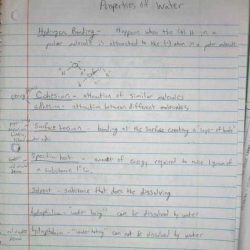 Properties of Water
Hydrogen Bonding - Happens when the (+) H in a
polar molecule is attracted to the (-) atom in a polar molecule
Cohesion - attraction of similar molecules
adhesion - attraction between different molecules
Surface tension - bonding at the surface creating a layer of bonds
Specific heat - amount of energy required to raise 1 gram of
a substance 1°C.
Solvent - substance that does the dissolving
hydrophilic - "water loving" can be dissolved by water
hydrophobic - "water hating" can not be dissolved by water